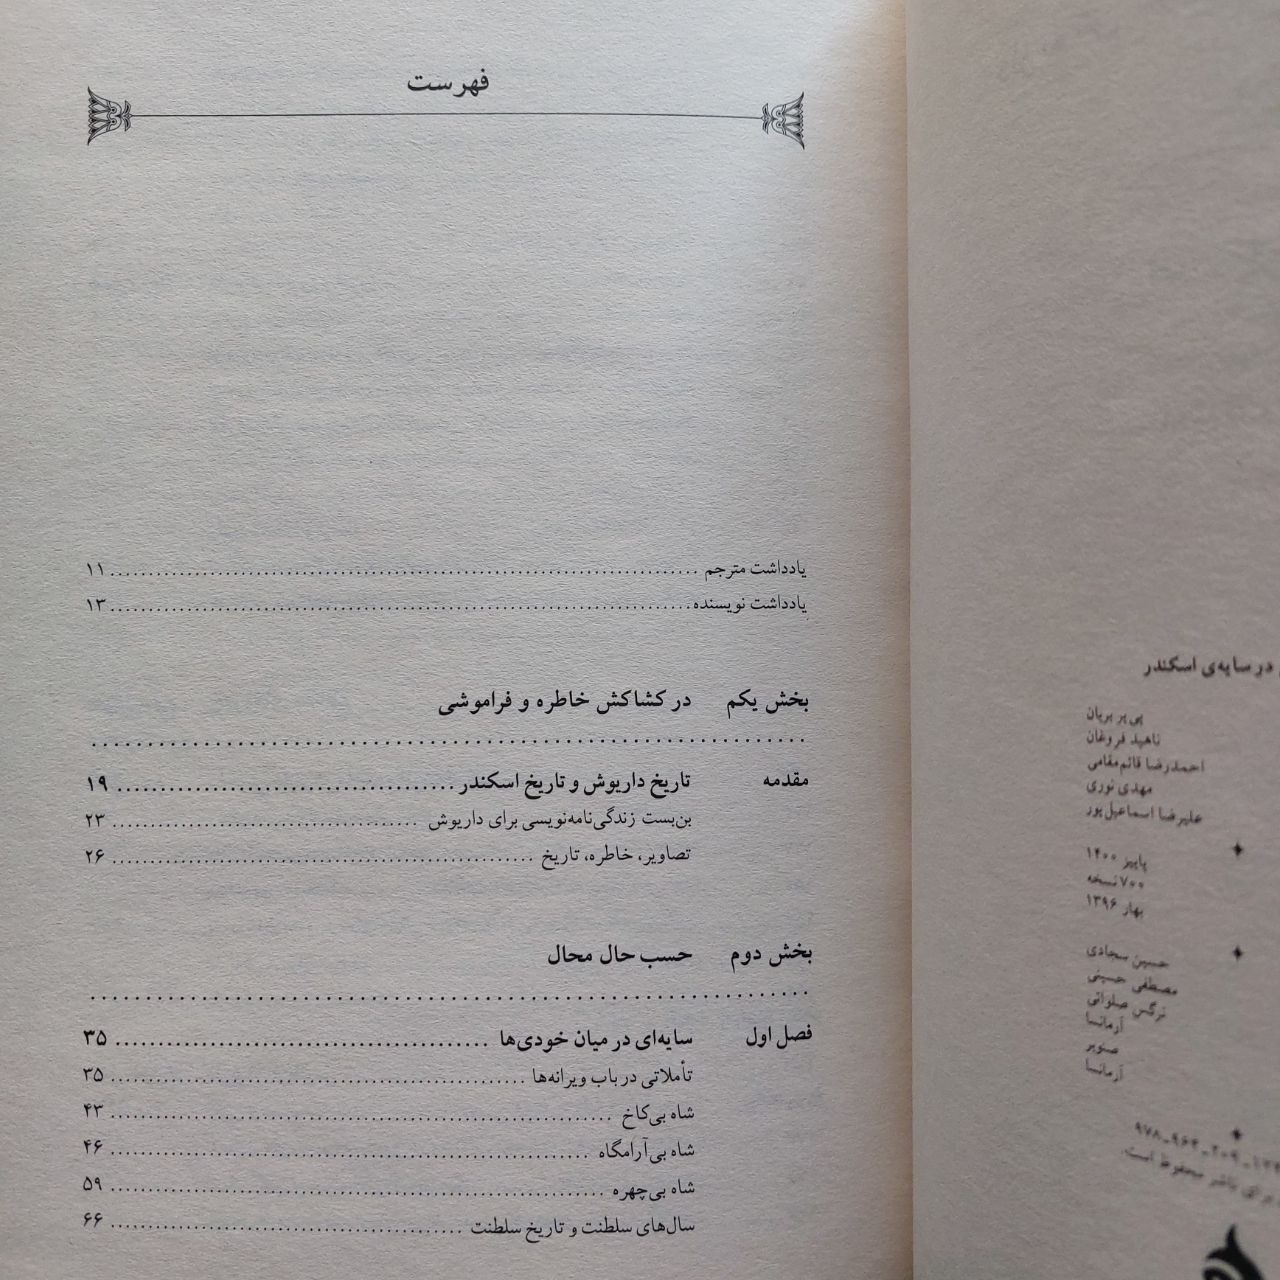 در سایه‌ی اسکندر
پی‌یر بریان
ناهید فروغان
احمدرضا قائم‌مقامی
مهدی نوری
علیرضا اسماعیل‌پور
پاییز ۱۴۰۰
۷۰۰ نسخه
بهار ۱۳۹۶
حسین سجادی
مصطفی حسینی
نرگس صلواتی
آرمانسا
صنوبر
آرمانسا
۹۷۸-۹۶۴-۲۰۹-
برای ناشر محفوظ است.
فهرست
یادداشت مترجم ........ ۱۱
یادداشت نویسنده ........ ۱۳
بخش یکم در کشاکش خاطره و فراموشی
مقدمه تاریخ داریوش و تاریخ اسکندر ........ ۱۹
بن‌بست زندگی‌نامه‌نویسی برای داریوش ........ ۲۳
تصاویر، خاطره، تاریخ ........ ۲۶
بخش دوم حسب حال محال
فصل اول سایه‌ای در میان خودی‌ها ........ ۳۵
تأملاتی در باب ویرانه‌ها ........ ۳۵
شاه بی‌کاخ ........ ۴۳
شاه بی‌آرامگاه ........ ۴۶
شاه بی‌چهره ........ ۵۹
سال‌های سلطنت و تاریخ سلطنت ........ ۶۶